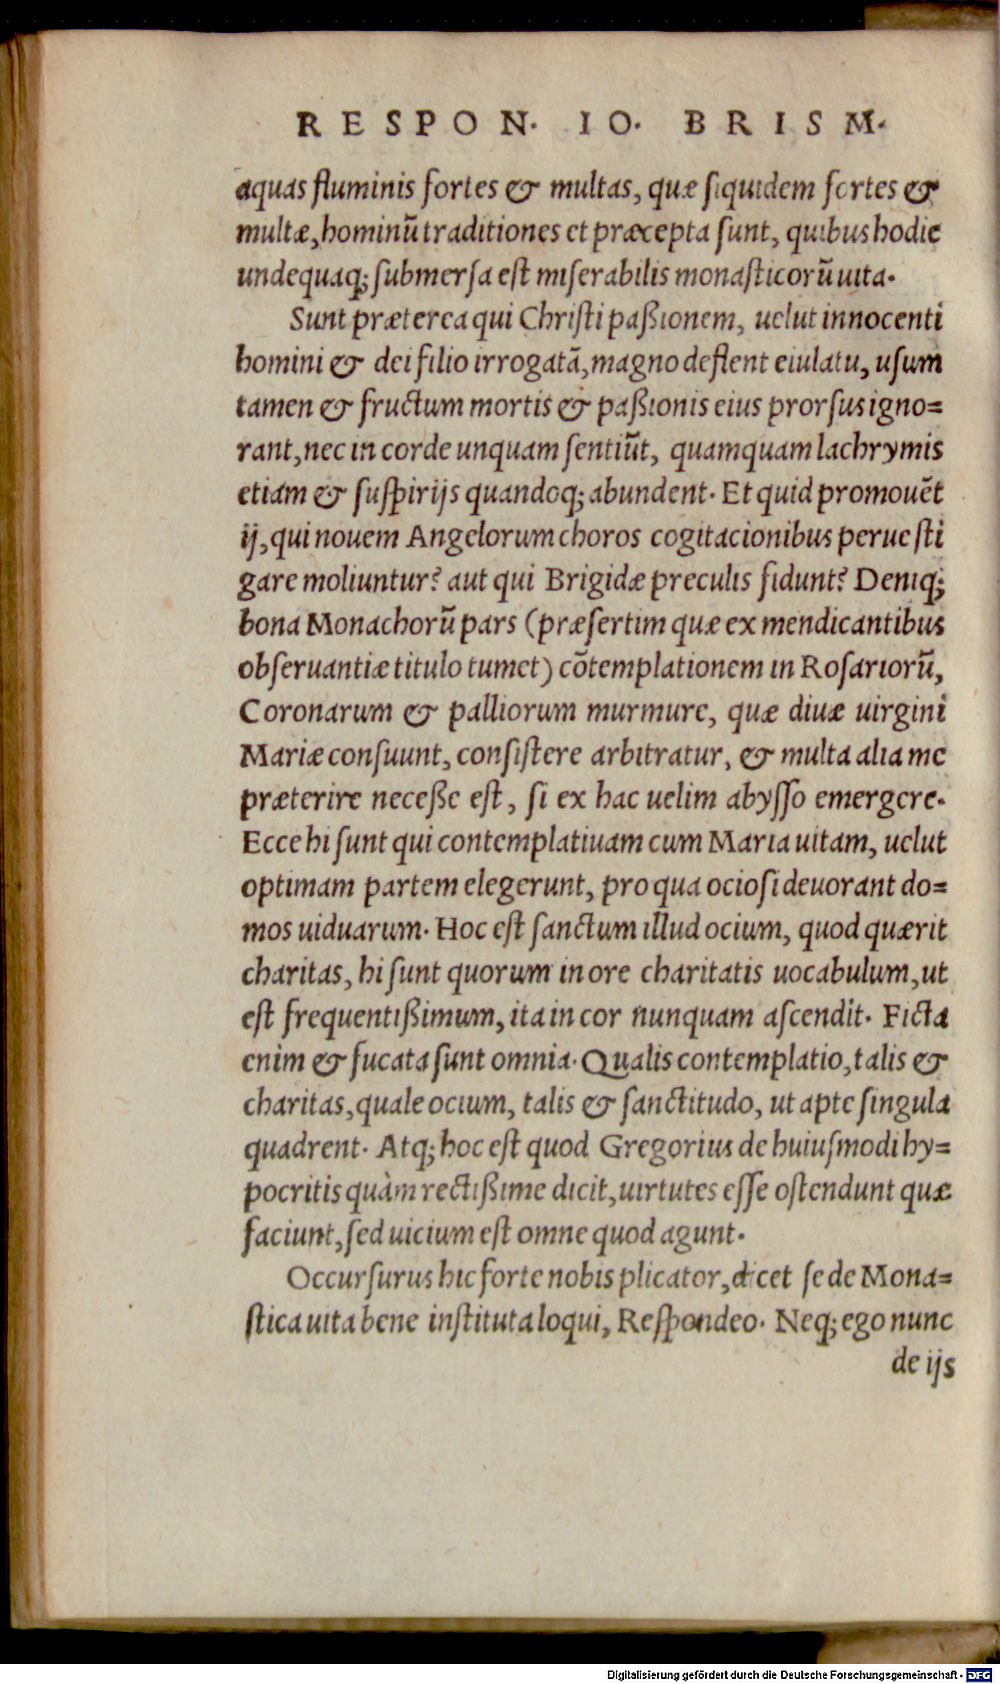 RESPON. IO. BRISM.
aquas fluminis fortes & multas, quæ siquidem fortes &
multæ, hominũ traditiones et præcepta sunt, quibus hodie
undequaq; submersa est miserabilis monasticorũ uita.
Sunt præterea qui Christi paßionem, uelut innocenti
homini & dei filio irrogatã, magno deflent eiulatu, usum
tamen & fructum mortis & paßionis eius prorsus igno=
rant, nec in corde unquam sentiũt, quamquam lachrymis
etiam & suspirijs quandoq; abundent. Et quid promouẽt
ij, qui nouem Angelorum choros cogitacionibus peruesti
gare moliuntur? aut qui Brigidæ preculis fidunt? Deniq;
bona Monachorũ pars (præsertim quæ ex mendicantibus
obseruantiæ titulo tumet) cõtemplationem in Rosariorũ,
Coronarum & palliorum murmure, quæ diuæ uirgini
Mariæ consuunt, consistere arbitratur, & multa alia me
præterire neceße est, si ex hac uelim abysso emergere.
Ecce hi sunt qui contemplatiuam cum Maria uitam, uelut
optimam partem elegerunt, pro qua ociosi deuorant do=
mos uiduarum. Hoc est sanctum illud ocium, quod quærit
charitas, hi sunt quorum in ore charitatis uocabulum, ut
est frequentißimum, ita in cor nunquam ascendit. Ficta
enim & fucata sunt omnia. Qualis contemplatio, talis &
charitas, quale ocium, talis & sanctitudo, ut apte singula
quadrent. Atq; hoc est quod Gregorius de huiusmodi hy=
pocritis quàm rectißime dicit, uirtutes esse ostendunt quæ
faciunt, sed uicium est omne quod agunt.
Occursurus hic forte nobis plicator, dicet se de Mona=
stica uita bene instituta loqui, Respondeo. Neq; ego nunc
de ijs
Digitalisierung gefördert durch die Deutsche Forschungsgemeinschaft - DFG